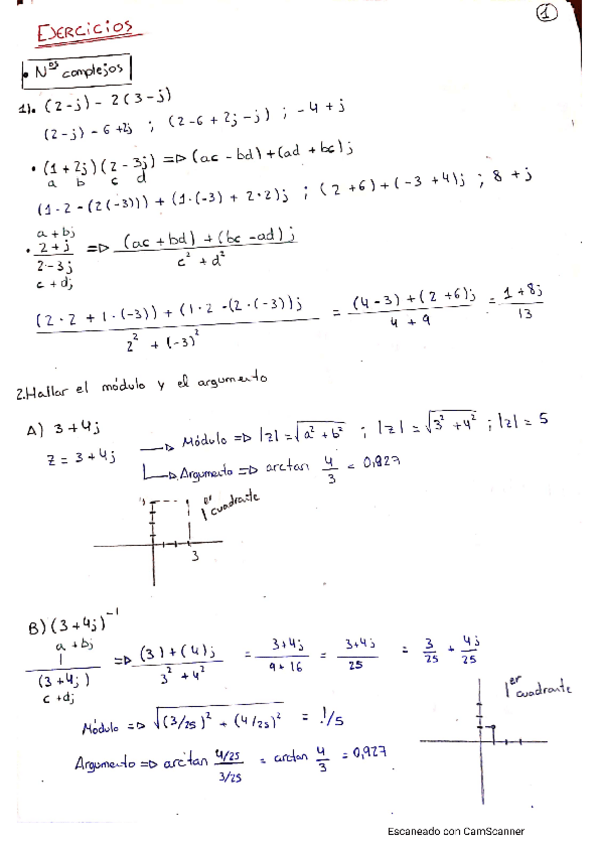 1
EJERCICIOS
• Nos complejos
1). (2-j) - 2(3-j)
(2-j) - 6 +2j ; (2-6 + 2j -j) ; -4 + j
• (1+2j)(2-3j) => (ac - bd) + (ad + bc)j
a b c d
(1·2 - (2(-3))) + (1·(-3) + 2·2)j ; (2+6) + (-3 +4)j ; 8 + j
a + bj
• 2+j / 2-3j => (ac + bd) + (bc - ad)j / c² + d²
c + dj
(2·2 + 1·(-3)) + (1·2 - (2·(-3))j / 2² + (-3)² = (4-3) + (2+6)j / 4 + 9 = 1+8j / 13
2.Hallar el módulo y el argumento
A) 3+4j
z = 3+4j → Módulo => |z| = √a² + b² ; |z| = √3² + 4² ; |z| = 5
→ Argumento => arctan 4/3 = 0,927
1er cuadrante
3
B) (3+4j)⁻¹
a + bj
1 / (3+4j) => (3) + (4)j / 3² + 4² = 3+4j / 9+16 = 3+4j / 25 = 3/25 + 4j/25
c + dj
1er cuadrante
Módulo => √(3/25)² + (4/25)² = 1/5
Argumento => arctan 4/25 / 3/25 = arctan 4/3 = 0,927
Escaneado con CamScanner